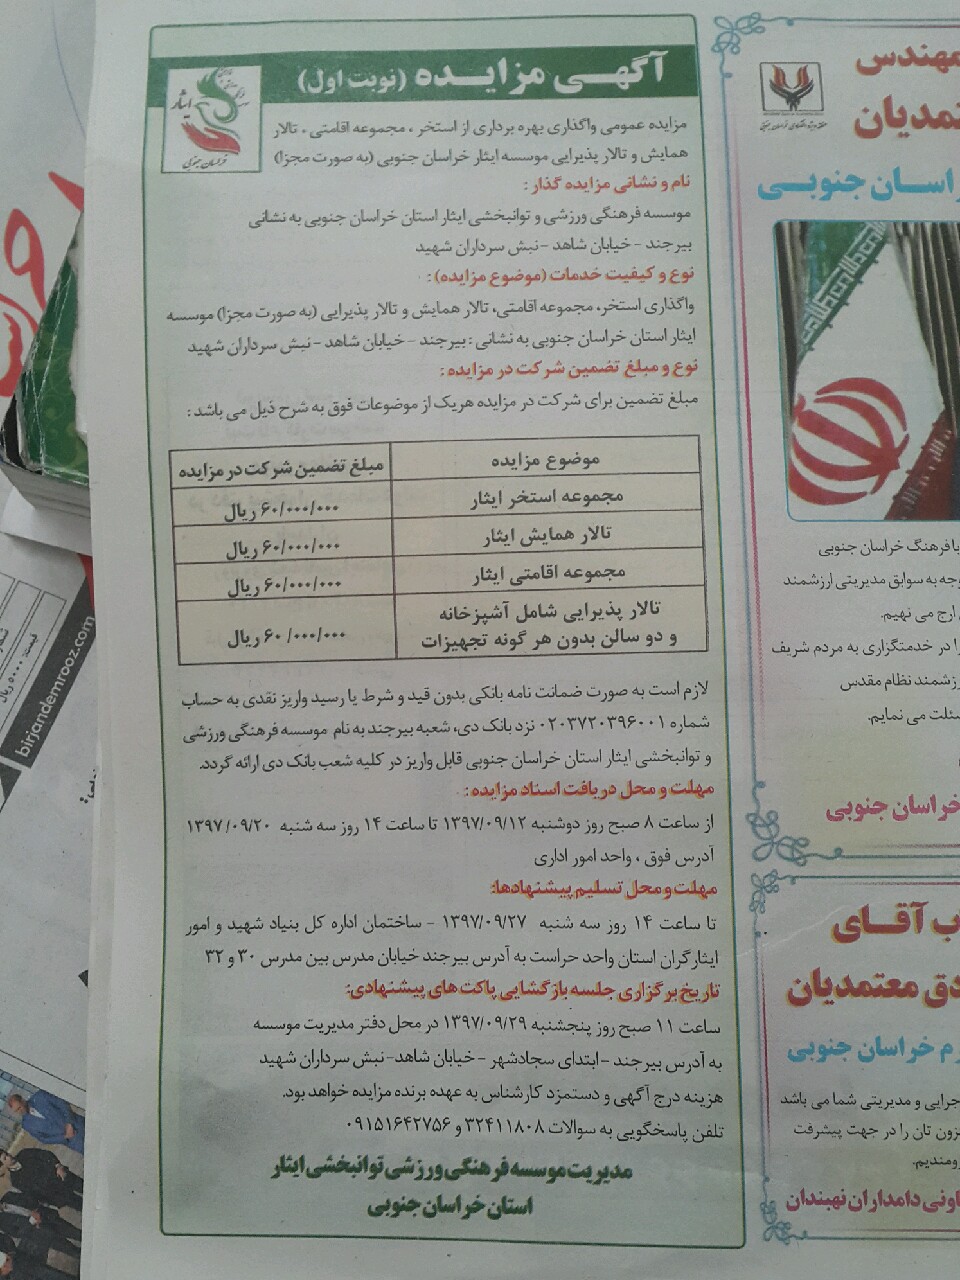 آگهی مزایده (نوبت اول)
ایثار
خراسان جنوبی
مزایده عمومی واگذاری بهره برداری از استخر ، مجموعه اقامتی ، تالار
همایش و تالار پذیرایی موسسه ایثار خراسان جنوبی (به صورت مجزا)
نام و نشانی مزایده گذار :
موسسه فرهنگی ورزشی و توانبخشی ایثار استان خراسان جنوبی به نشانی
بیرجند - خیابان شاهد - نبش سرداران شهید
نوع و کیفیت خدمات (موضوع مزایده) :
واگذاری استخر، مجموعه اقامتی، تالار همایش و تالار پذیرایی (به صورت مجزا) موسسه
ایثار استان خراسان جنوبی به نشانی : بیرجند - خیابان شاهد - نبش سرداران شهید
نوع و مبلغ تضمین شرکت در مزایده :
مبلغ تضمین برای شرکت در مزایده هریک از موضوعات فوق به شرح ذیل می باشد :
موضوع مزایده
مبلغ تضمین شرکت در مزایده
مجموعه استخر ایثار
۶۰/۰۰۰/۰۰۰ ریال
تالار همایش ایثار
۶۰/۰۰۰/۰۰۰ ریال
مجموعه اقامتی ایثار
۶۰/۰۰۰/۰۰۰ ریال
تالار پذیرایی شامل آشپزخانه
و دو سالن بدون هر گونه تجهیزات
۶۰/۰۰۰/۰۰۰ ریال
لازم است به صورت ضمانت نامه بانکی بدون قید و شرط یا رسید واریز نقدی به حساب
شماره ۰۲۰۳۷۲۰۳۹۶۰۰۱ نزد بانک دی، شعبه بیرجند به نام موسسه فرهنگی ورزشی
و توانبخشی ایثار استان خراسان جنوبی قابل واریز در کلیه شعب بانک دی ارائه گردد.
مهلت و محل دریافت اسناد مزایده :
از ساعت ۸ صبح روز دوشنبه ۱۳۹۷/۰۹/۱۲ تا ساعت ۱۴ روز سه شنبه ۱۳۹۷/۰۹/۲۰
آدرس فوق ، واحد امور اداری
مهلت و محل تسلیم پیشنهادها:
تا ساعت ۱۴ روز سه شنبه ۱۳۹۷/۰۹/۲۷ - ساختمان اداره کل بنیاد شهید و امور
ایثارگران استان واحد حراست به آدرس بیرجند خیابان مدرس بین مدرس ۳۰ و ۳۲
تاریخ برگزاری جلسه بازگشایی پاکت های پیشنهادی:
ساعت ۱۱ صبح روز پنجشنبه ۱۳۹۷/۰۹/۲۹ در محل دفتر مدیریت موسسه
به آدرس بیرجند - ابتدای سجادشهر - خیابان شاهد-نبش سرداران شهید
هزینه درج آگهی و دستمزد کارشناس به عهده برنده مزایده خواهد بود.
تلفن پاسخگویی به سوالات ۳۲۴۱۱۸۰۸ و ۰۹۱۵۱۶۴۲۷۵۶
مدیریت موسسه فرهنگی ورزشی توانبخشی ایثار
استان خراسان جنوبی
مهندس
تمدیان
اسان جنوبی
بافرهنگ خراسان جنوبی
وجه به سوابق مدیریتی ارزشمند
ارج می نهیم.
را در خدمتگزاری به مردم شریف
رزشمند نظام مقدس
سئلت می نمایم.
خراسان جنوبی
ب آقای
دق معتمدیان
م خراسان جنوبی
جرایی و مدیریتی شما می باشد
زون تان را در جهت پیشرفت
رومندیم.
اونی دامداران نهبندان
birjandemrooz.com
قیمت: ۵۰۰۰ ریال